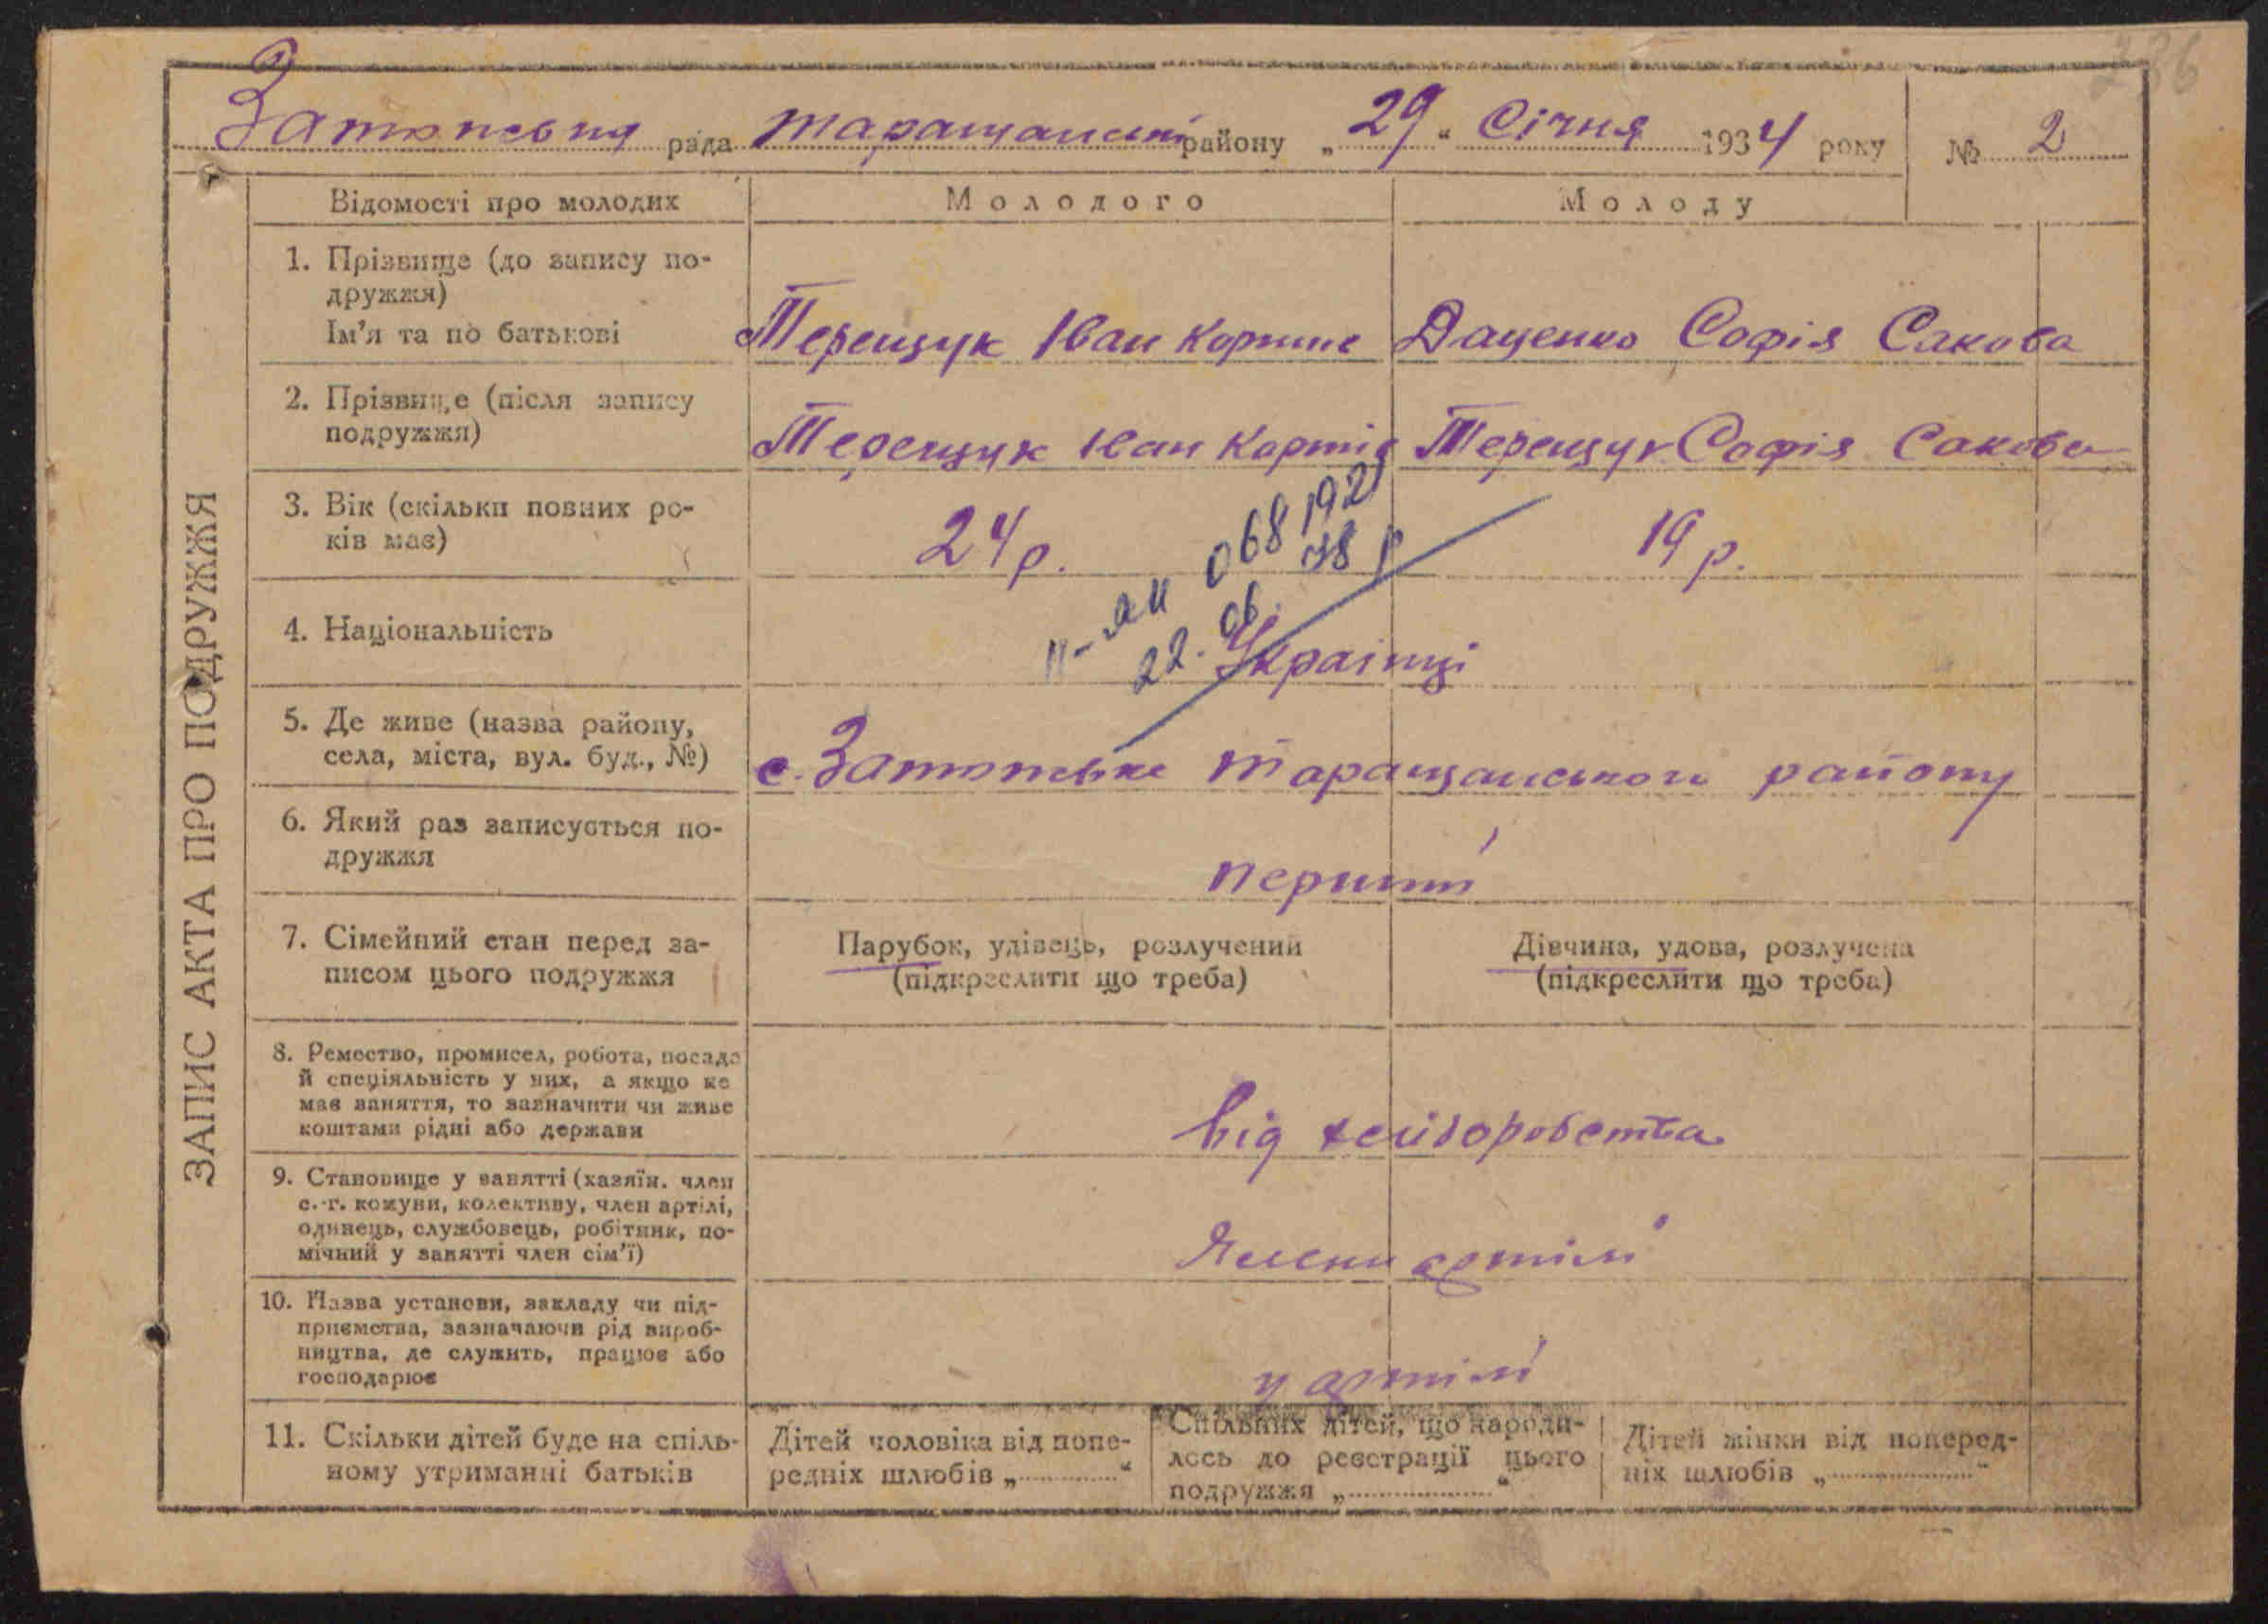 286
Затонська рада таращанськ району „29“ Січня 1934 року № 2
ЗАПИС АКТА ПРО ПОДРУЖЖЯ
Відомості про молодих
Молодого
Молоду
1. Прізвище (до запису по-
дружжя)
Ім'я та по батькові
Терещук Іван
Даценко Софія Сакова
2. Прізвище (після запису
подружжя)
Терещук Іван
Терещук Софія Сакова
3. Вік (скільки повних ро-
ків має)
24 р.
19 р.
068192
22. 06. 78 р
4. Національність
Українці
5. Де живе (назва району,
села, міста, вул. буд., №)
с. Затонське таращанського району
6. Який раз записується по-
дружжя
перший
7. Сімейний стан перед за-
писом цього подружжя
Парубок, удівець, розлучений
(підкреслити що треба)
Дівчина, удова, розлучена
(підкреслити що треба)
8. Ремество, промисел, робота, посада
й спеціяльність у них, а якщо не
має заняття, то зазначити чи живе
коштами рідні або держави
від хліборобства
9. Становище у занятті (хазяїн, член
с.-г. комуни, колективу, член артілі,
одинець, службовець, робітник, по-
мічний у занятті член сім'ї)
Члени артілі
10. Назва установи, закладу чи під-
приємства, зазначаючи рід вироб-
ництва, де служить, працює або
господарює
у артілі
11. Скільки дітей буде на спіль-
ному утриманні батьків
Дітей чоловіка від попе-
редніх шлюбів „ “
Спільних дітей, що народи-
лось до реєстрації цього
подружжя „ “
Дітей жінки від поперед-
ніх шлюбів „ “